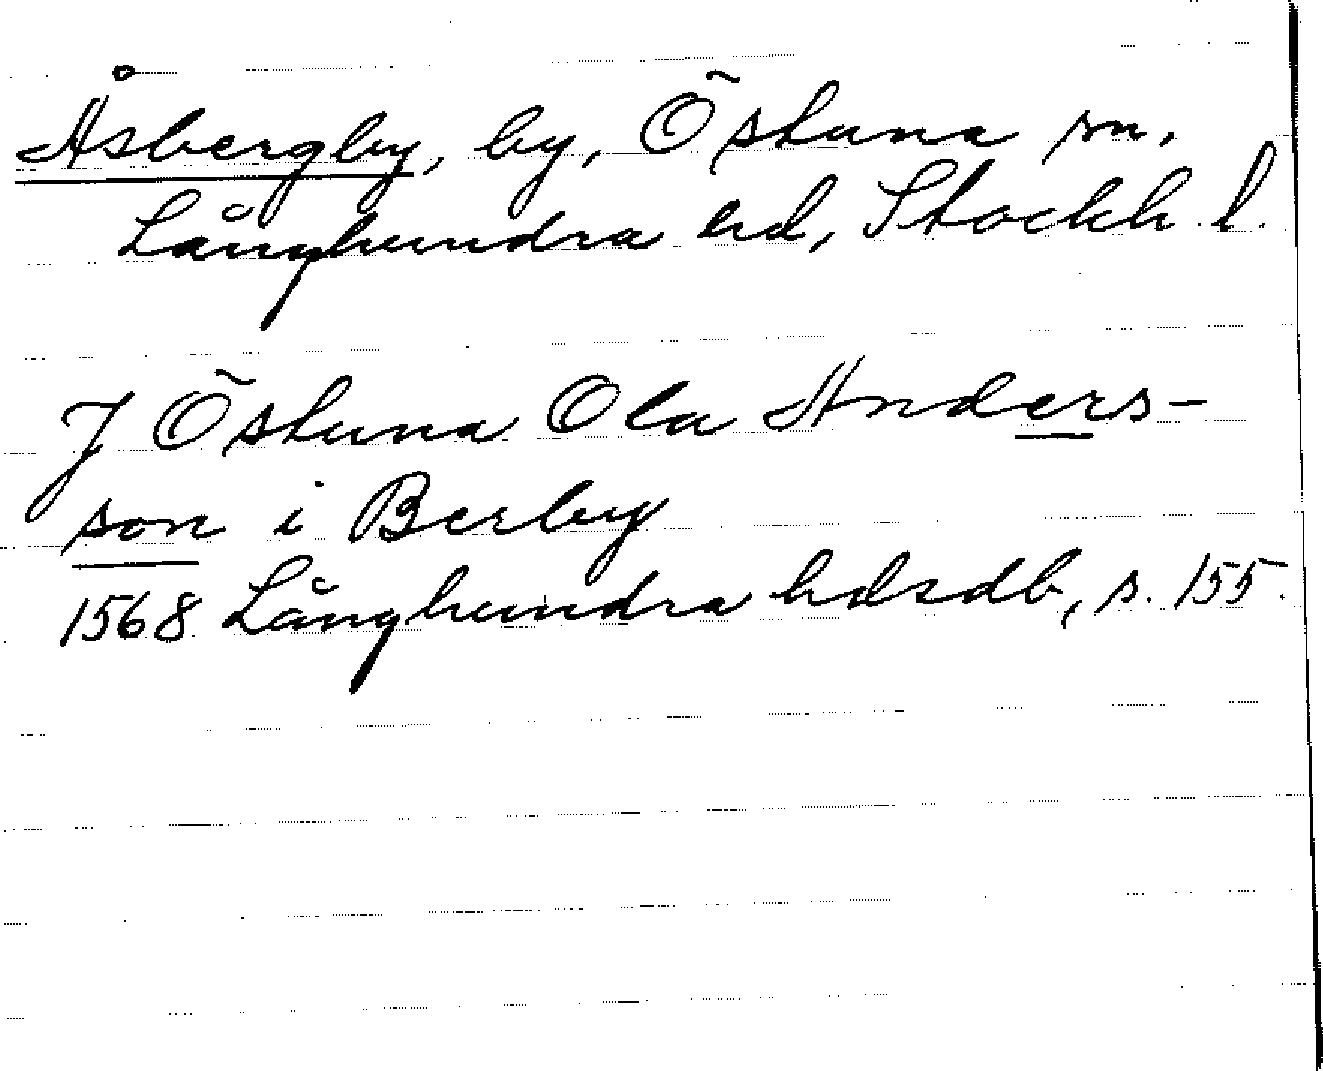 Åsbergby, by, Östuna sn,
Långhundra hd, Stockh. l.
J Östuna Ola Anders-
son i Berby
1568 Långhundra hdsdb, s. 155.